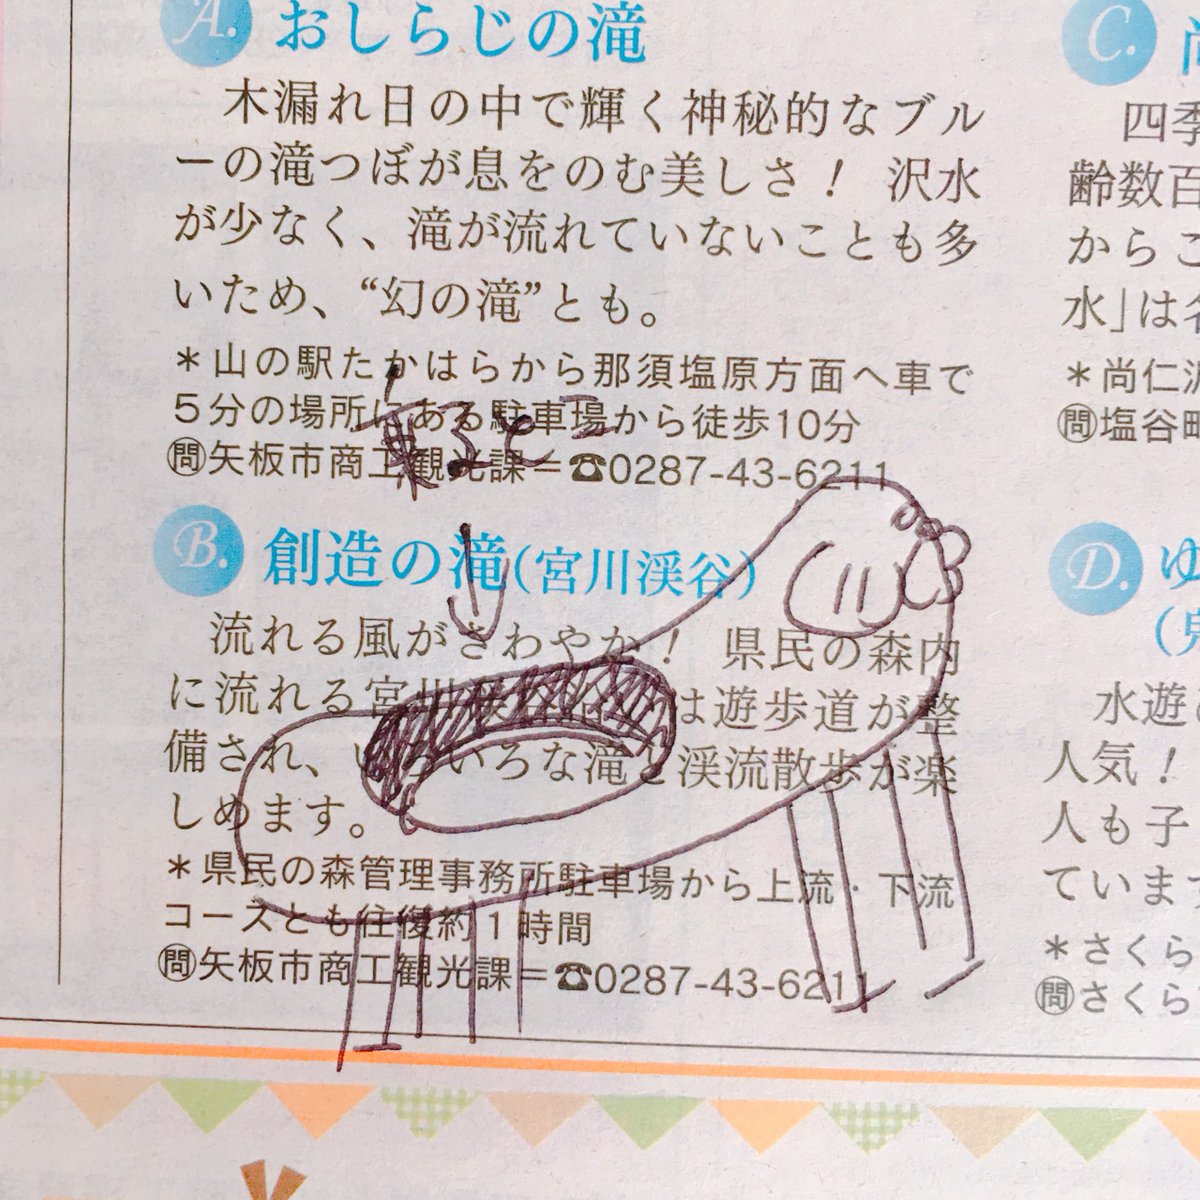 A. おしらじの滝
木漏れ日の中で輝く神秘的なブル
ーの滝つぼが息をのむ美しさ！ 沢水
が少なく、滝が流れていないことも多
いため、“幻の滝”とも。
＊山の駅たかはらから那須塩原方面へ車で
５分の場所にある駐車場から徒歩10分
㉄矢板市商工観光課＝☎0287-43-6211
乗るとこ
B. 創造の滝(宮川渓谷)
流れる風がさわやか！ 県民の森内
に流れる宮川渓谷沿 は遊歩道が整
備され、いろいろな滝と渓流散歩が楽
しめます。
＊県民の森管理事務所駐車場から上流・下流
コースとも往復約１時間
㉄矢板市商工観光課＝☎0287-43-6211
C.
四季
齢数百
からこ
水」は
＊尚仁
㉄塩谷町
D. ゆ
水遊
人気！
人も子
ていま
＊さくら
㉄さくら